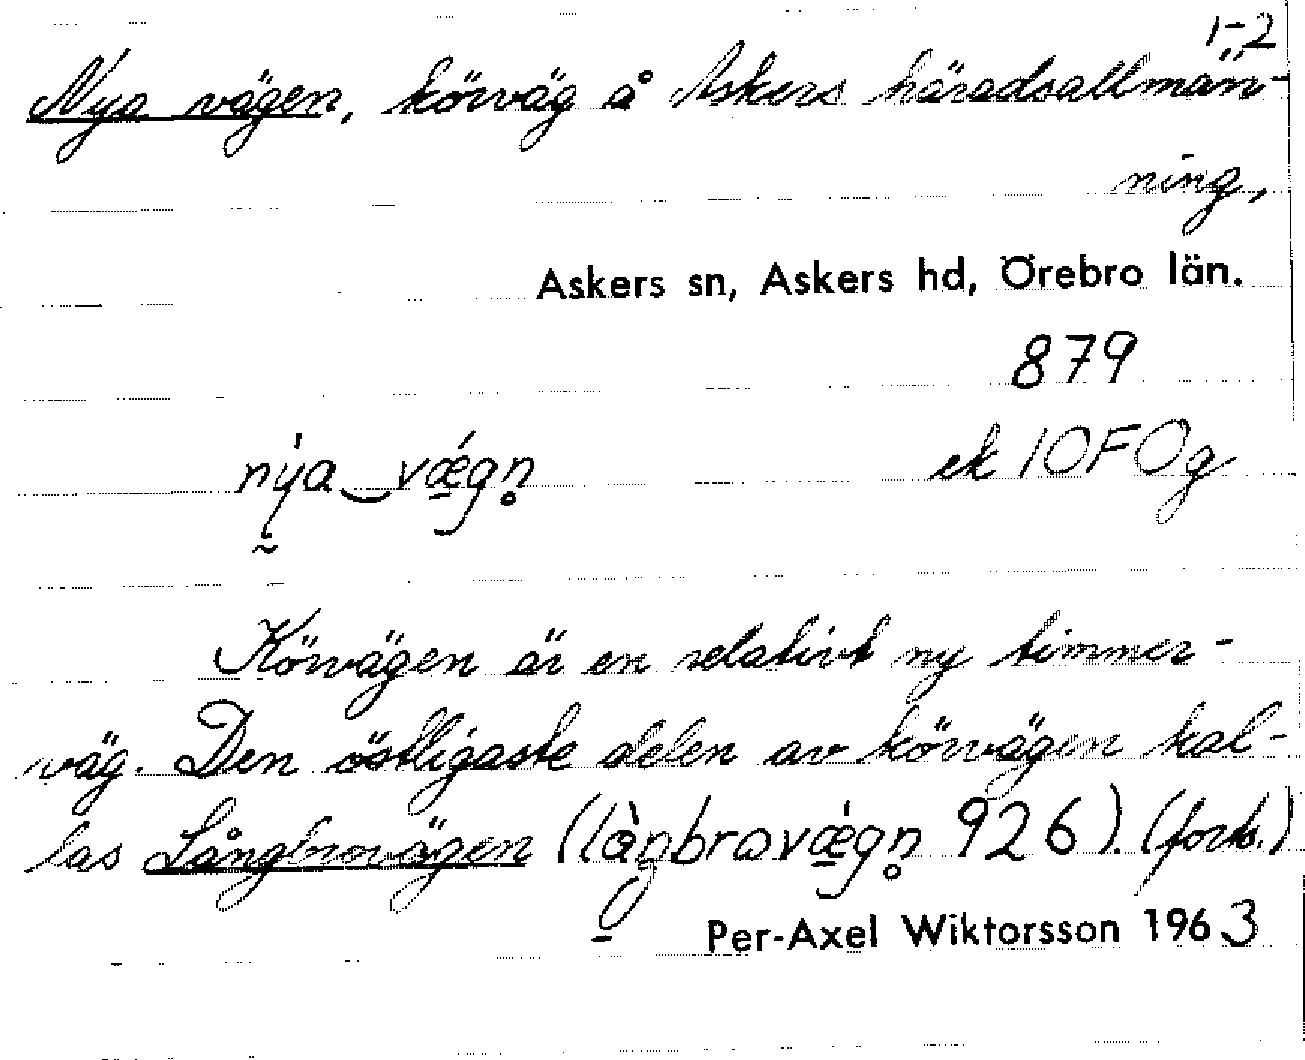 1-2
Nya vägen, körväg å Askers häradsallmän-
ning,
Askers sn, Askers hd, Örebro län.
879
nya‿vǽgn̥
ek 10F0g
Körvägen är en relativt ny timmer-
väg. Den östligaste delen av körvägen kal-
las Långbrovägen (làŋbravǽgn̥ 926). (forts.)
Per-Axel Wiktorsson 1963